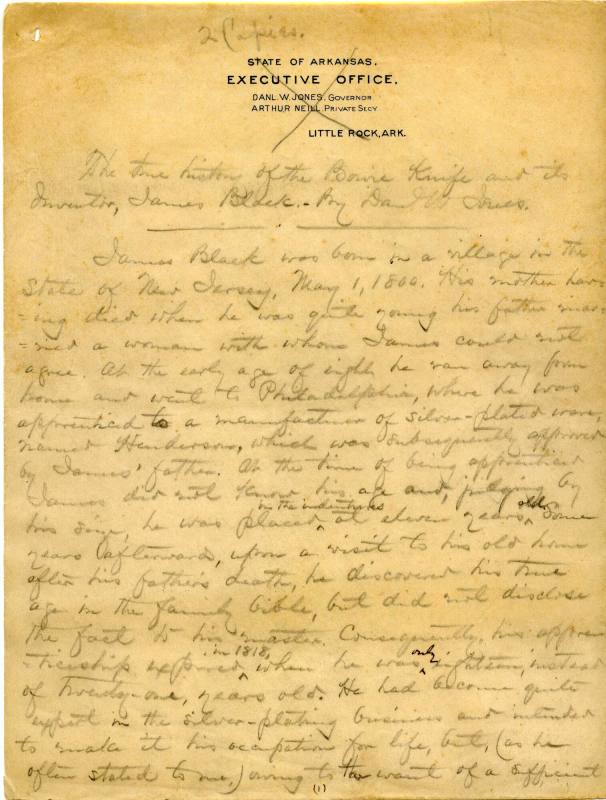 2 Copies.
STATE OF ARKANSAS.
EXECUTIVE OFFICE.
DANL. W. JONES, GOVERNOR
ARTHUR NEILL, PRIVATE SECY
LITTLE ROCK, ARK.
The true history of the Bowie Knife and its
Inventor, James Black.- By Dan'l W Jones.
James Black was born in a village in the
State of New Jersey, May 1, 1800. His mother hav-
=ing died when he was quite young his father mar-
=ried a woman with whom James could not
agree. At the early age of eight he ran away from
home and went to Philadelphia, where he was
apprenticed to a manufacturer of silver-plated ware,
named Henderson, which was subsequently approved
by James' father. At the time of being apprenticed
James did not know his age and, judging by
his size, he was placed in the indentures at eleven years old. Some
years afterwards, upon a visit to his old home
after his father's death, he discovered his true
age in the family bible, but did not disclose
the fact to his master. Consequently, his appren-
-ticeship expired in 1818, when he was only eighteen, instead
of twenty-one, years old. He had become quite
expert in the silver-plating business and intended
to make it his occupation for life, but, (as he
often stated to me,) owing to the want of a sufficient
(1)